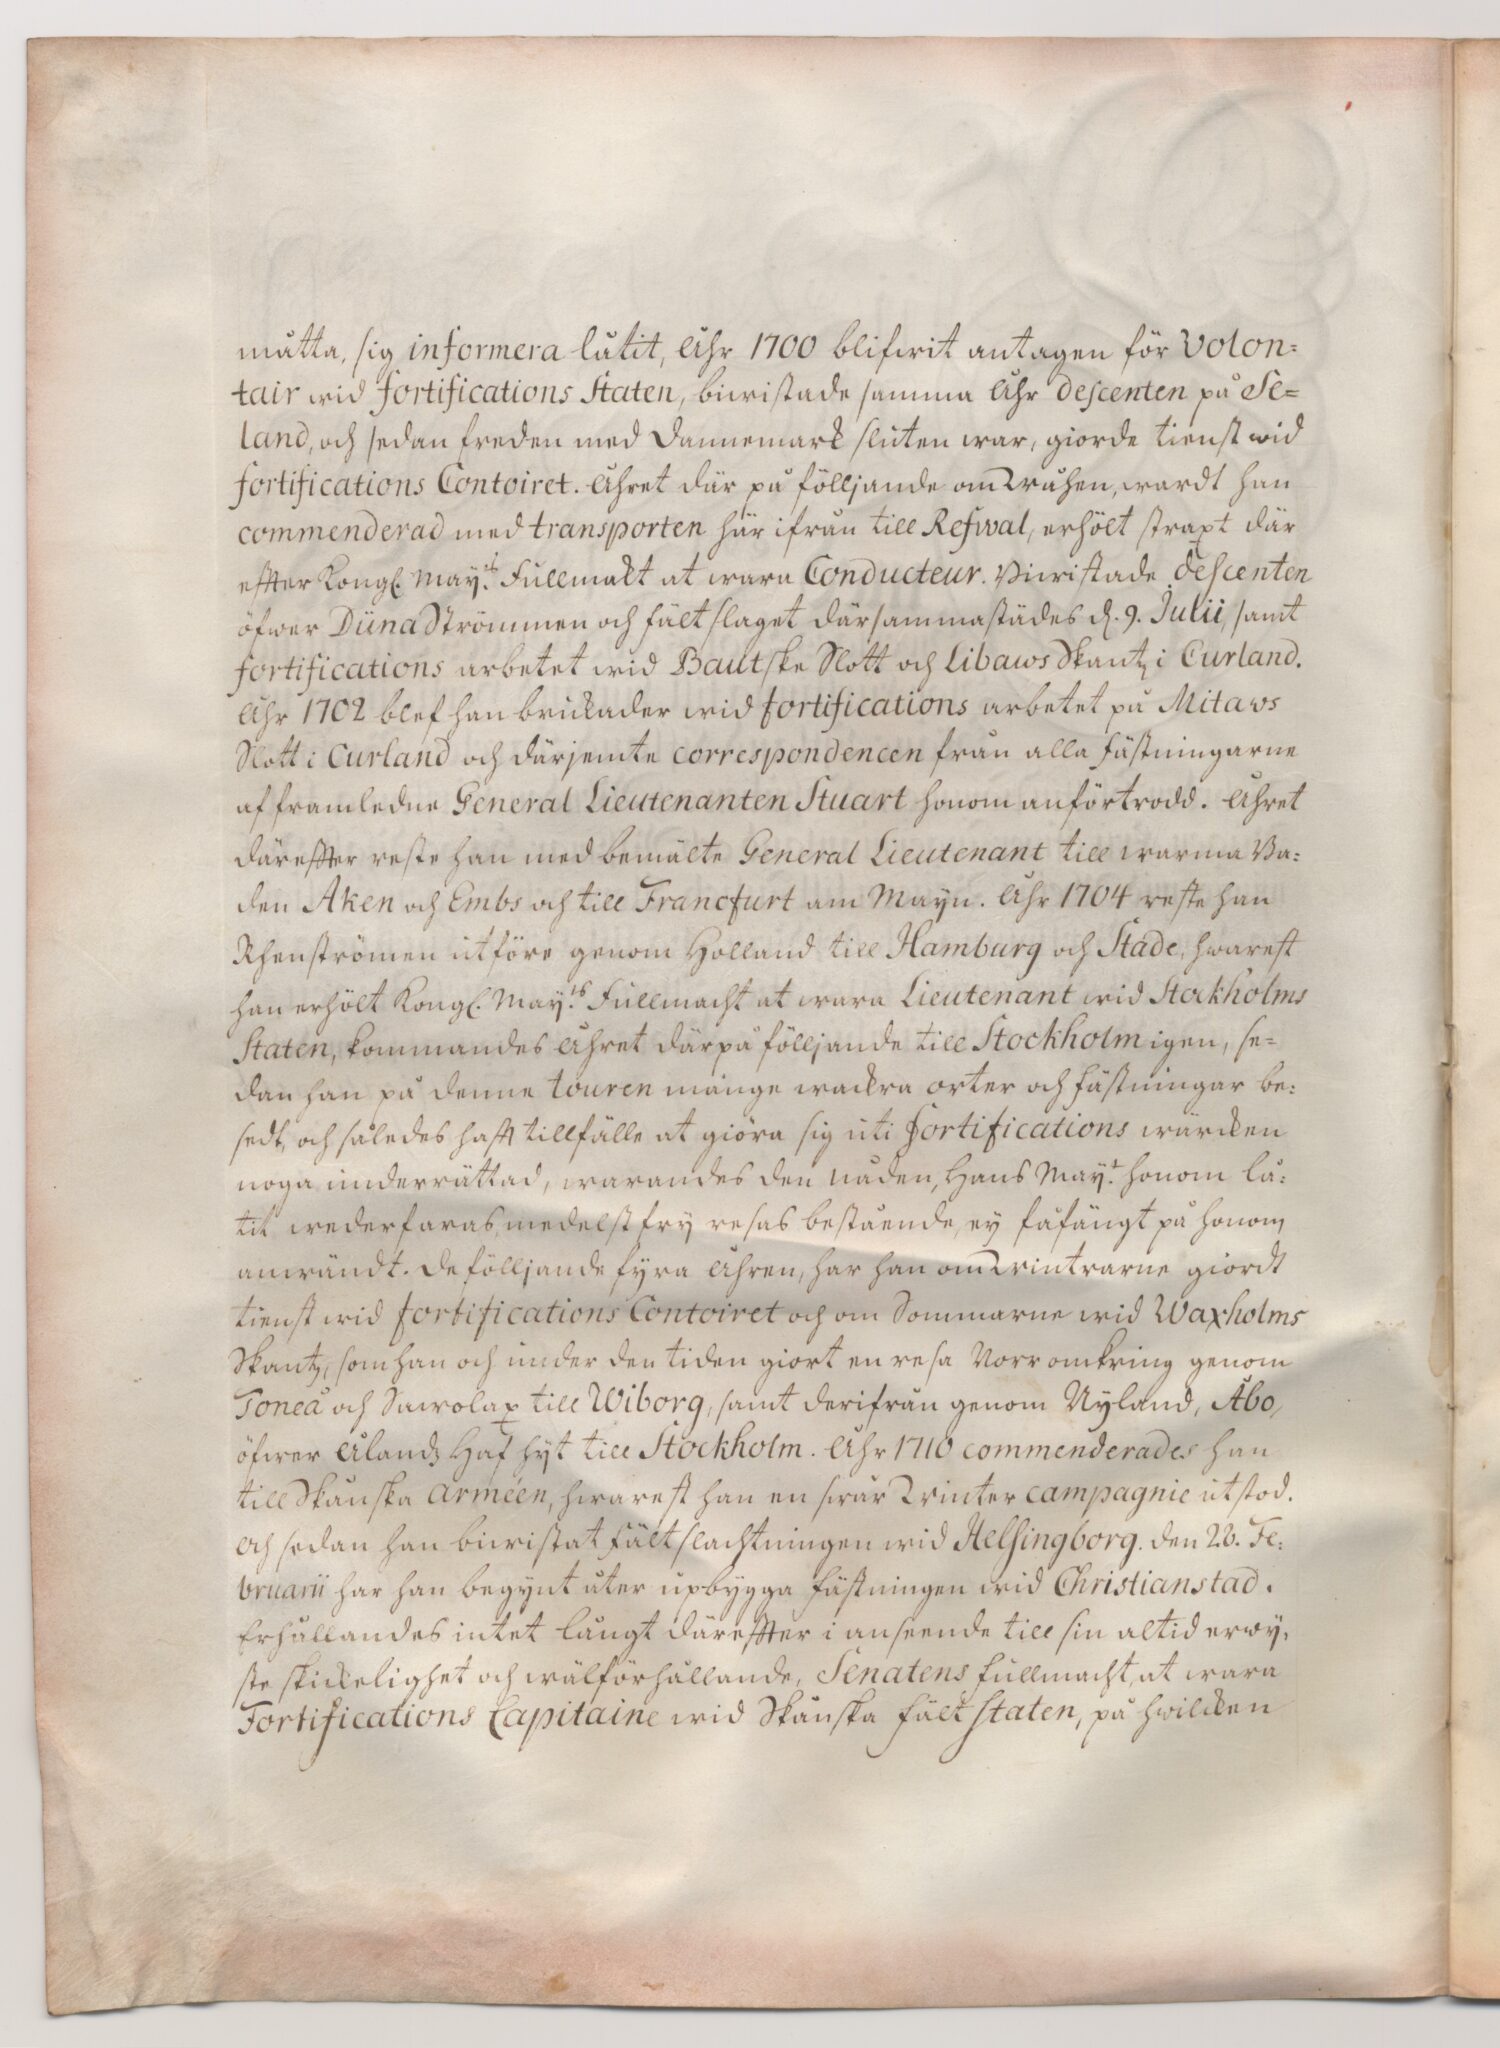 måtta, sig informera låtit, Åhr 1700 blifwit antagen för Volon=
tair wid fortifications Staten, biwistade samma Åhr descenten på Se=
land, och sedan freden med Dannemark sluten war, giorde tienst wid
fortifications Contoiret. Åhret där på fölljande om Wåhren, wardt han
commenderad med transporten här ifrån till Refwal, erhölt straxt där
effter Kongl. Mayts. Fullmakt at wara Conducteur. Biwistade descenten
öfwer Düna Strömmen och fält slaget därsammastädes d. 9. Julii, samt
fortifications arbetet wid Bautske Slott och Libaws Skantz i Curland.
Åhr 1702 blef han brukader wid fortifications arbetet på Mitaws
Slott i Curland och därjemte correspondencen från alla fästningarne
af framledne General Lieutenanten Stuart honom anförtrodd. Åhret
däreffter reste han med bemälte General Lieutenant till warma Ba=
den Aken och Embs och till Francfurt am Mayn. Åhr 1704 reste han
Rhenströmen utföre genom Holland till Hamburg och Stade, hwarest
han erhölt Kongl. Mayts. Fullmacht at wara Lieutenant wid Stockholms
Staten, kommandes Åhret därpå fölljande till Stockholm igen, se=
dan han på denne touren månge wackra orter och fästningar be=
sedt, och således hafft tillfälle at giöra sig uti fortifications wärcken
noga underrättad, warandes den nåden, Hans Mayt. honom lå=
tit wederfaras, medelst fry resas bestående, ey fåfängt på honom
anwändt. De fölljande fyra Åhren, har han om Wintrarne giordt
tienst wid fortifications Contoiret och om Sommarne wid Waxholms
Skantz, som han och under den tiden giort en resa Norr omkring genom
Toneå och Sawolax till Wiborg, samt derifrån genom Nyland, Åbo,
öfwer Ålandz Haf hyt till Stockholm. Åhr 1710 commenderades han
till Skånska Arméen, hwarest han en swår Winter campagnie utstod.
Och sedan han biwistat fält slachtningen wid Helsingborg. den 28. Fe=
bruarii har han begynt åter upbygga fästningen wid Christianstad.
Erhållandes intet långt däreffter i anseende till sin altid erwy=
ste skickelighet och wälförhållande, Senatens fullmacht, at wara
Fortifications Capitaine wid Skånska fält staten, på hwilcken